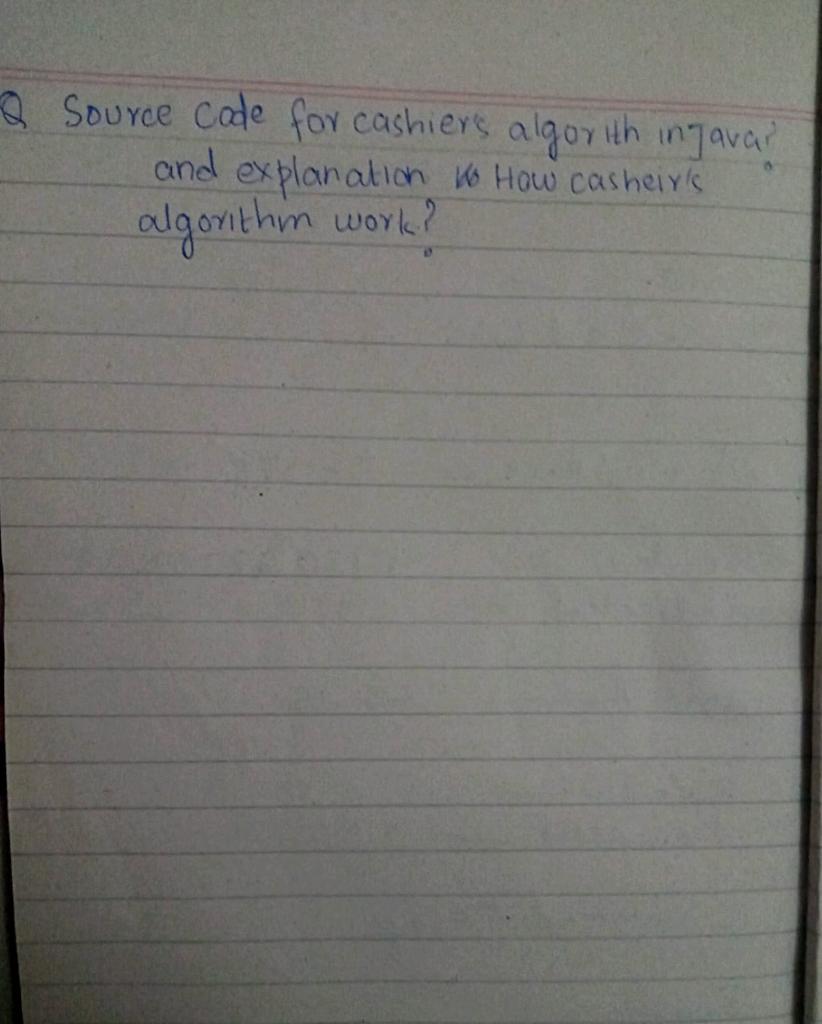 Q Source Code for cashiers algorith in Java?
and explanation How casheir's
algorithm work?